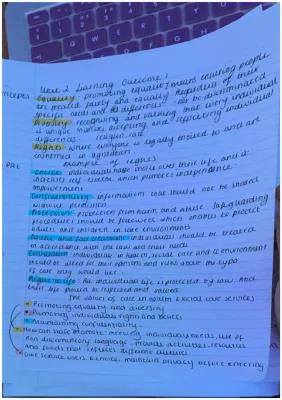 Unit 2 Learning Outcome 1
Equality: promoting equality means ensuring people
are treated fairly and equally regardless of their
specific needs and its differences. not be discriminated
Diversity: recognising and valuing that every individual
is unique involves accepting and respecting individual
differences.
Rights: where everyone is legally entitled to and are
enshrined in legislation.
Example of rights:
Choice: individuals have over their life and it
which promotes independence
empowerment
Confidentiality: information care should not be shared
without permission
Protection: protection from harm and abuse. Safeguarding
procedures should be followed which enables to protect
adults and children in care environments
Equal and fair treatment: individuals should be treated
in accordance with the law and their needs
Consultation: individual in health, social care and environment
should be asked for their opinions and views about the type
of care they would like.
Right to life: An individual life is protected by law. And
their life should be respected and valued
The values of care in health & social care services
Promoting equality and diversity
Promoting individuals rights and beliefs
Maintaining confidentiality
meeting individuals needs, use of
Non discriminatory language. provide activities, resources
and foods that reflects different cultures
maintain privacy before entering